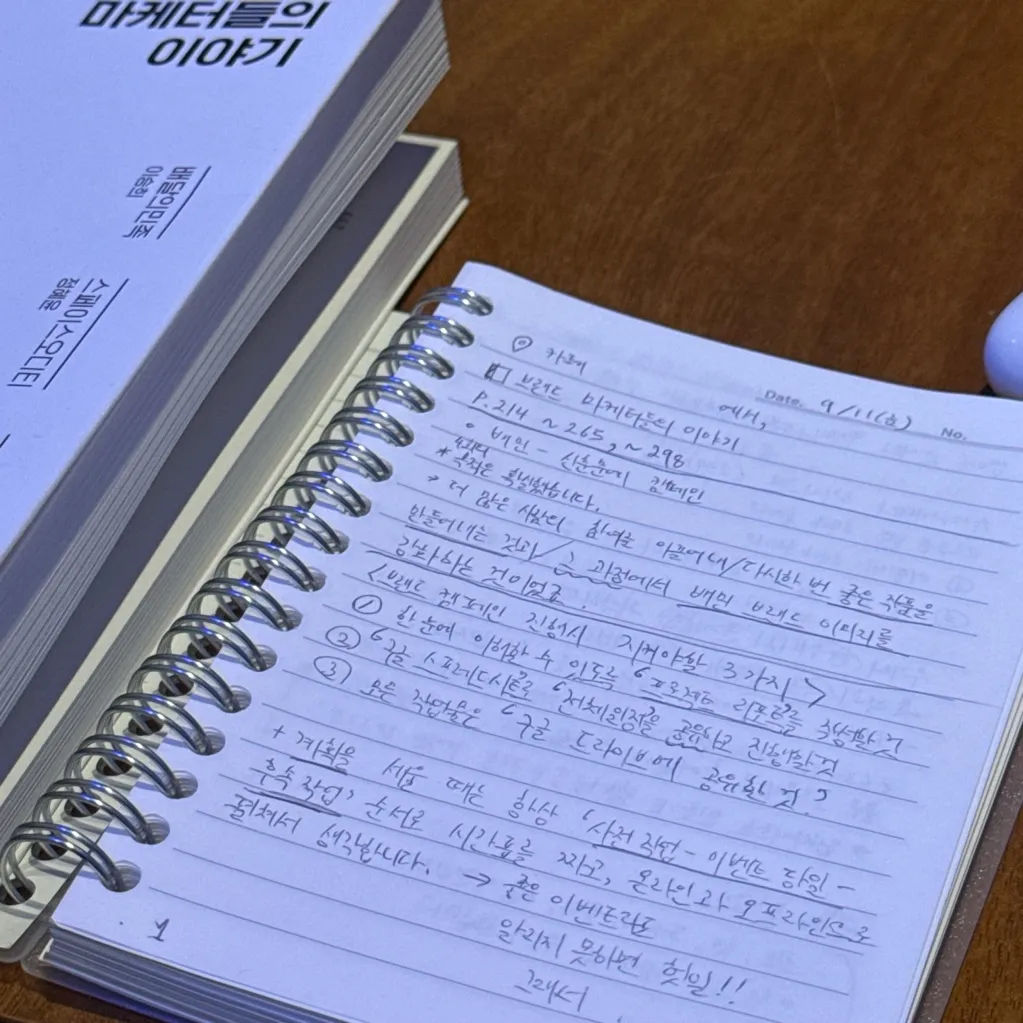 마케터들의
이야기
배달의민족
이승희
스페이스오디티
정혜윤
카페
에서,
Date. 9/11(금) No.
브랜드 마케터들의 이야기
P.214 ~ 265, ~ 298
배민 - 신춘문예 캠페인
* 목적은 확실했습니다.
→ 더 많은 사람의 참여를 이끌어내/다시 한 번 좋은 작품을
만들어내는 것과/그 과정에서 배민 브랜드 이미지를
강화하는 것이었죠.
<브랜드 캠페인 진행시 지켜야할 3가지>
① 한 눈에 이해할 수 있도록 '프로젝트 리포트'를 작성할 것
② '구글 스프레드시트'로 '전체일정'을 공유하고 진행할 것
③ 모든 작업물은 '구글 드라이브'에 공유할 것'
+ 계획을 세울 때는 항상 '사전 작업 - 이벤트 당일 -
후속 작업' 순서로 시간표를 짜고, 온라인과 오프라인으로
펼쳐서 생각합니다. → 좋은 이벤트라도
알리지 못하면 헛일!!
그래서
1